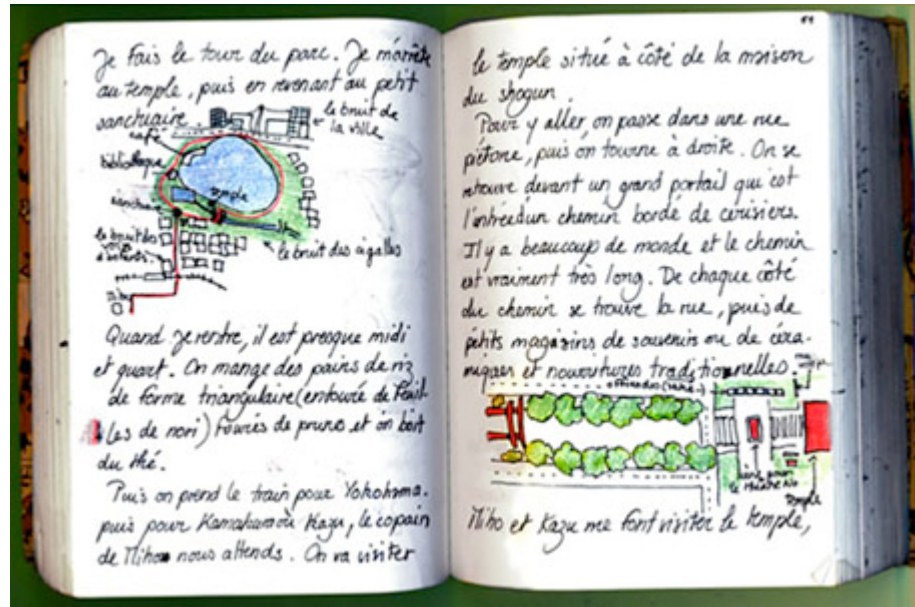 Je fais le tour du parc. Je m'arrête
au temple, puis en revenant au petit
sanctuaire.
café
le bruit de
la ville
bibliothèque
temple
sanctuaire
le bruit des
le bruit des cigalles
Quand je rentre, il est presque midi
et quart. On mange des pains de riz
de forme triangulaire (entouré de feuil-
les de nori) fourrés de prune et on boit
du thé.
Puis on prend le train pour Yokohama.
puis pour Kamakura où Kazu, le copain
de Miho nous attends. On va visiter
le temple situé à côté de la maison
du shogun.
Pour y aller, on passe dans une rue
piétone, puis on tourne à droite. On se
retrouve devant un grand portail qui est
l'entrée d'un chemin bordé de cerisiers.
Il y a beaucoup de monde et le chemin
est vraiment très long. De chaque côté
du chemin se trouve la rue, puis de
petits magasins de souvenirs ou de céra-
miques et nourritures traditionnelles.
temple
Miho et Kazu me font visiter le temple,